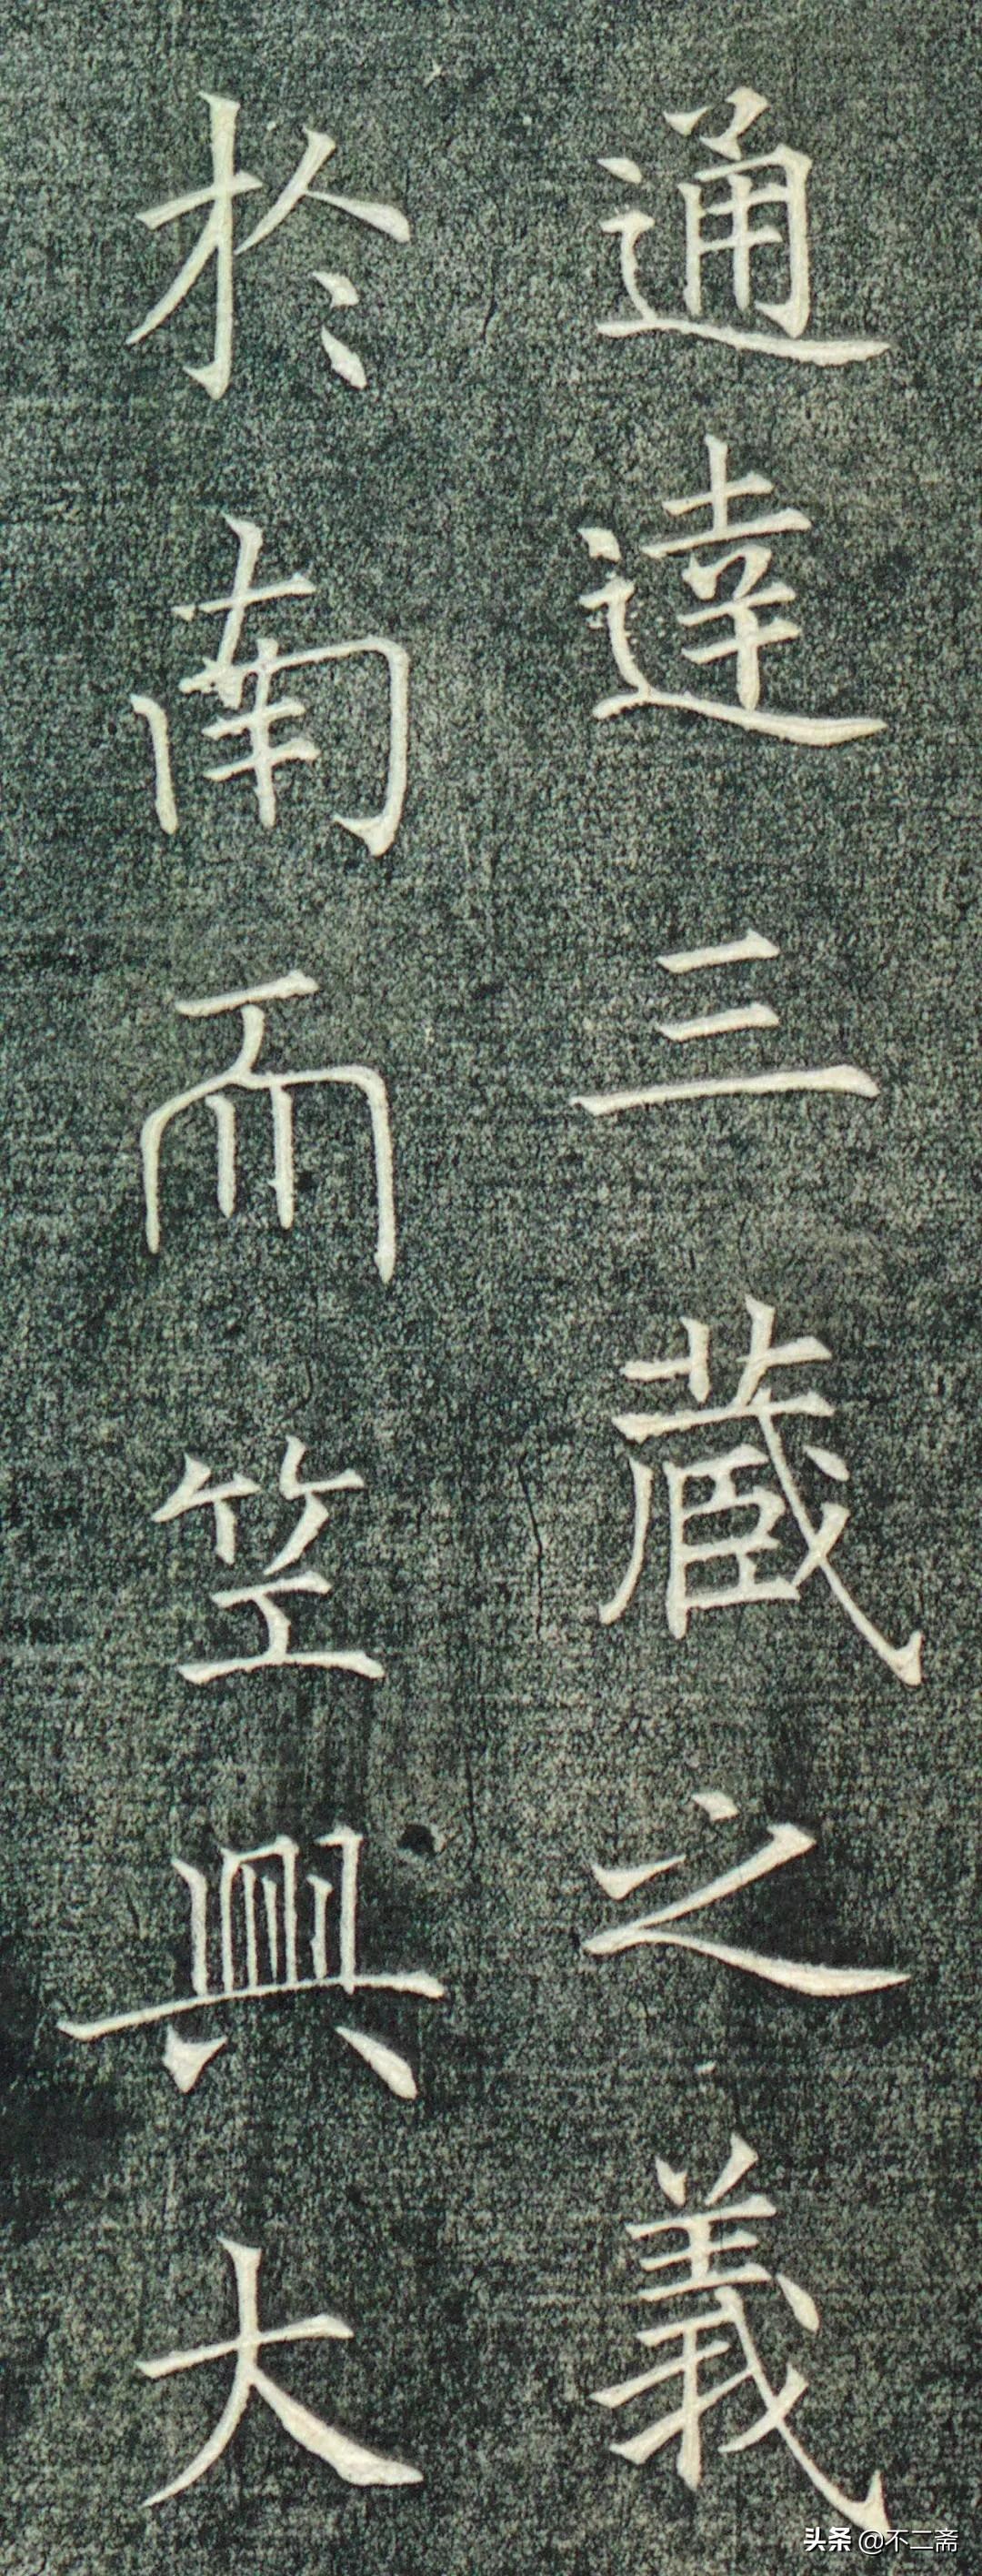 通逹三蔵之義
於南而笁興大
头条 @不二斋